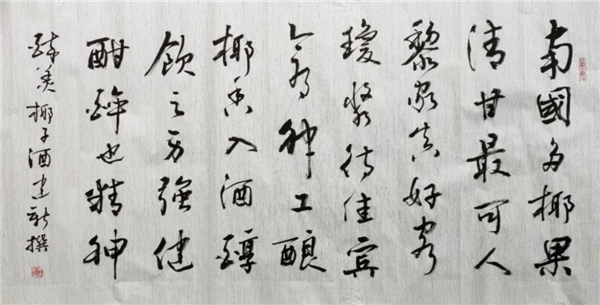 南國多椰果
清甘最可人
黎家真好客
瓊漿待佳賓
神工釀
椰香入酒醇
飲之身強健
酣醉也精神
醉美椰子酒 建新撰